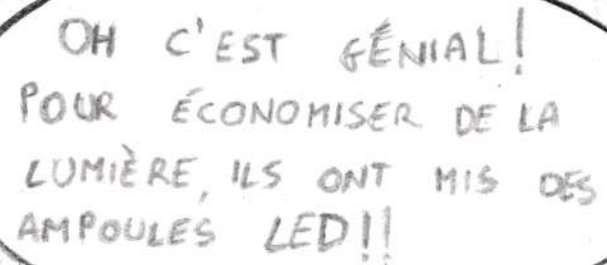 OH C'EST GÉNIAL!
POUR ÉCONOMISER DE LA
LUMIÈRE, ILS ONT MIS DES
AMPOULES LED!!